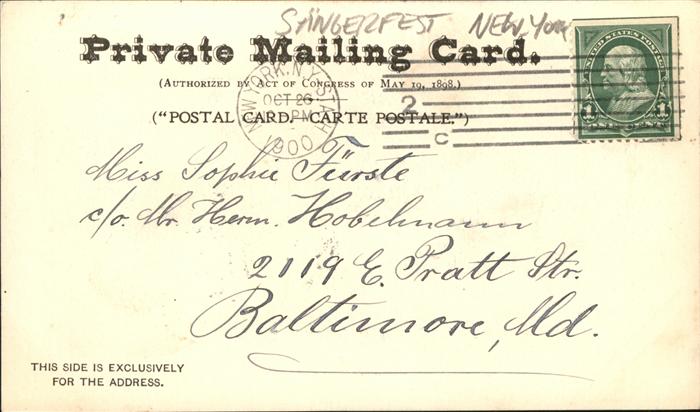 SÄNGERFEST NEW YORK
Private Mailing Card.
(AUTHORIZED BY ACT OF CONGRESS OF MAY 19, 1898.)
NEW YORK, N.Y. STA. H
OCT 26
PM
1900
2
C
("POSTAL CARD, CARTE POSTALE.")
UNITED STATES POSTAGE
1 1
Miss Sophie Fürste
c/o. Mr. Herm. Hobelmann
2119 E. Pratt Str.
Baltimore, Md.
THIS SIDE IS EXCLUSIVELY
FOR THE ADDRESS.